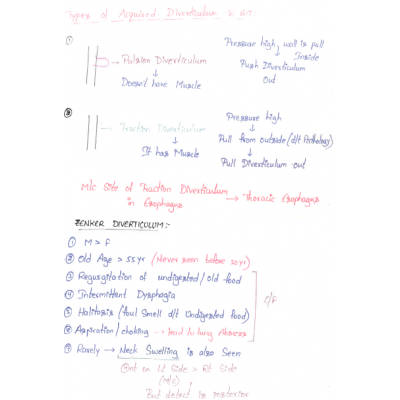 Types of Acquired Diverticulum in GIT:
① → Pulsion Diverticulum
↓
Doesn't have Muscle
Pressure high, wall is pull
Inside
↓
Push Diverticulum
Out
② → Traction Diverticulum
↓
It has Muscle
Pressure high
↓
Pull from outside (d/t Pathology)
↓
Pull Diverticulum out
M/c Site of Traction Diverticulum → Thoracic Esophagus
in Esophagus
ZENKER DIVERTICULUM:-
① M > F
② Old Age > 55yr (Never seen before 30yr)
③ Regurgitation of undigested / old food
④ Intermittent Dysphagia
⑤ Halitosis (foul Smell d/t Undigested food)
⑥ Aspiration / choking → lead to lung Abscess
C/F
⑦ Rarely → Neck Swelling is also Seen
on Lt Side > Rt Side
(M/c) ↓
But defect is posterior